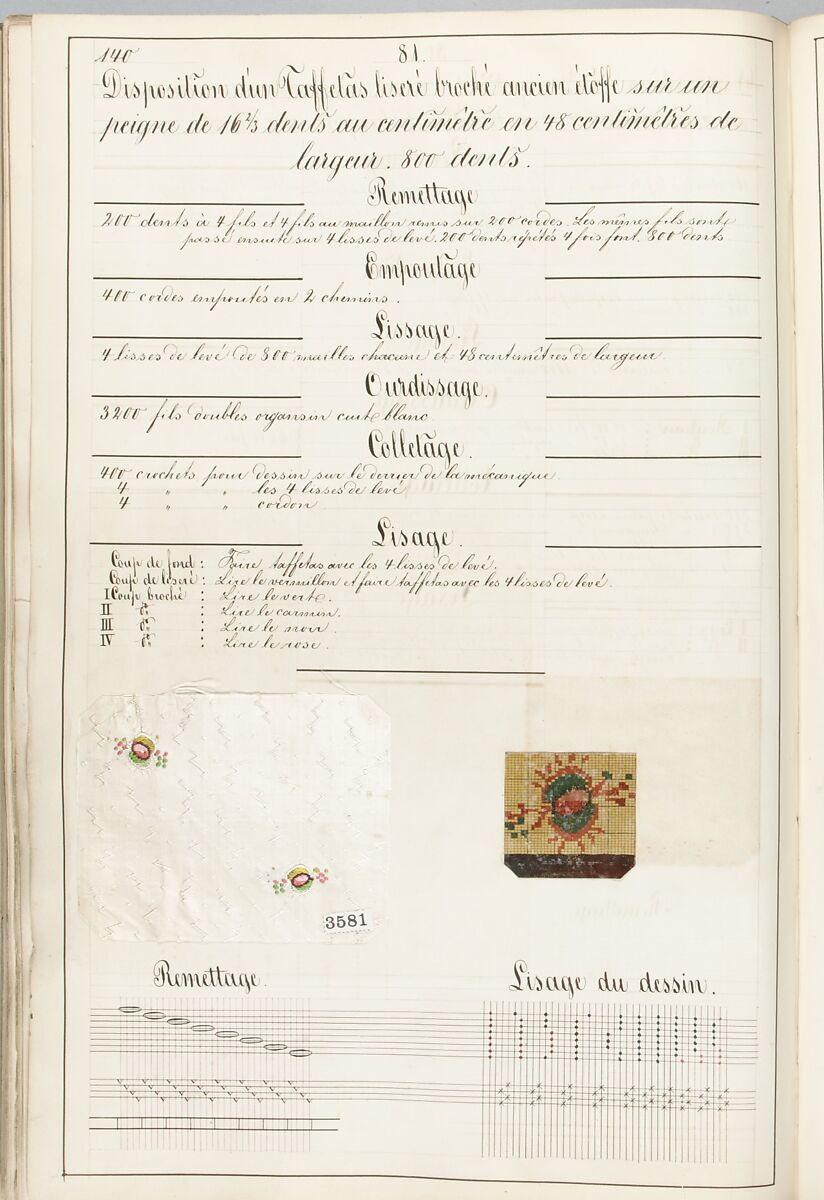 140
81.
Disposition d'un Taffetas liseré broché ancien étoffe sur un
peigne de 16 2/3 dents au centimêtre en 48 centimêtres de
largeur. 800 dents.
Remettage
200 dents à 4 fils et 4 fils au maillon remis sur 200 cordes. Les mêmes fils sont
passé ensuite sur 4 lisses de levé. 200 dents répétés 4 fois font. 800 dents
Empoutage
400 cordes empoutés en 2 chemins.
Lissage.
4 lisses de levé de 800 mailles chacune et 48 centimêtres de largeur.
Ourdissage.
3200 fils doubles organsin cuit blanc
Colletage.
400 crochets pour dessin sur le derrier de la mécanique.
4 " " les 4 lisses de levé
4 " " cordon.
Lisage.
Coup de fond : Faire taffetas avec les 4 lisses de levé.
Coup de liseré : Lire le vermillon et faire taffetas avec les 4 lisses de levé.
I Coup broché : Lire le vert.
II do : Lire le carmin.
III do : Lire le noir.
IV do : Lire le rose.
3581
Remettage.
Lisage du dessin.